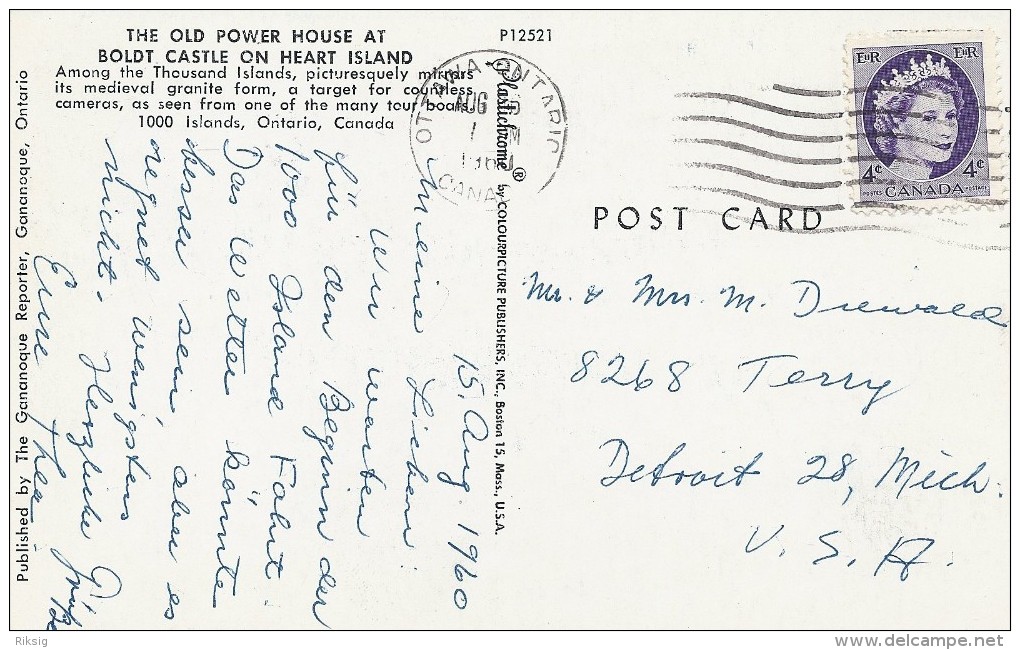 THE OLD POWER HOUSE AT
BOLDT CASTLE ON HEART ISLAND
Among the Thousand Islands, picturesquely mirrors
its medieval granite form, a target for countless
cameras, as seen from one of the many tour boats.
1000 Islands, Ontario, Canada
P12521
Published by The Gananoque Reporter, Gananoque, Ontario
Plastichrome ® by COLOURPICTURE PUBLISHERS, INC., Boston 15, Mass., U.S.A.
OTTAWA ONTARIO
AUG
1 PM
1960
CANADA
EIIR EIIR
4¢ 4¢
POSTES CANADA POSTAGE
POST CARD
15. Aug. 1960
Meine Lieben:
Wir warten
für den Beginn der
1000 Island Fahrt.
Das Wetter könnte
besser sein, aber es
regnet wenigstens
nicht. Herzliche Grüße
Eure Thea
Mr. & Mrs. M. Diewald
8268 Terry
Detroit 28, Mich.
U. S. A.
Riksig
delcampe.net